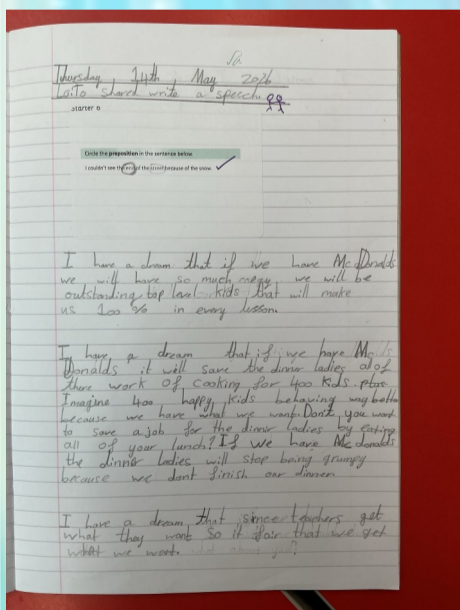 Thursday, 14th, May 2026
Lo:To shared write a speech.
Starter
Circle the preposition in the sentence below.
I couldn't see the end of the street because of the snow.
I have a dream that if we have McDonalds
we will have so much energy we will be
outstanding top level kids that will make
us 100% in every lesson.
I have a dream that if we have Mc
Donalds it will save the dinner ladies all of
there work of cooking for 400 kids.
Imagine 400 happy kids behaving way better
because we have what we want. Don't you want
to save a job for the dinner ladies by eating
all of your lunch? If we have Mcdonalds
the dinner ladies will stop being grumpy
because we dont finish our dinner.
I have a dream that since teachers get
what they want So it fair that we get
what we want.